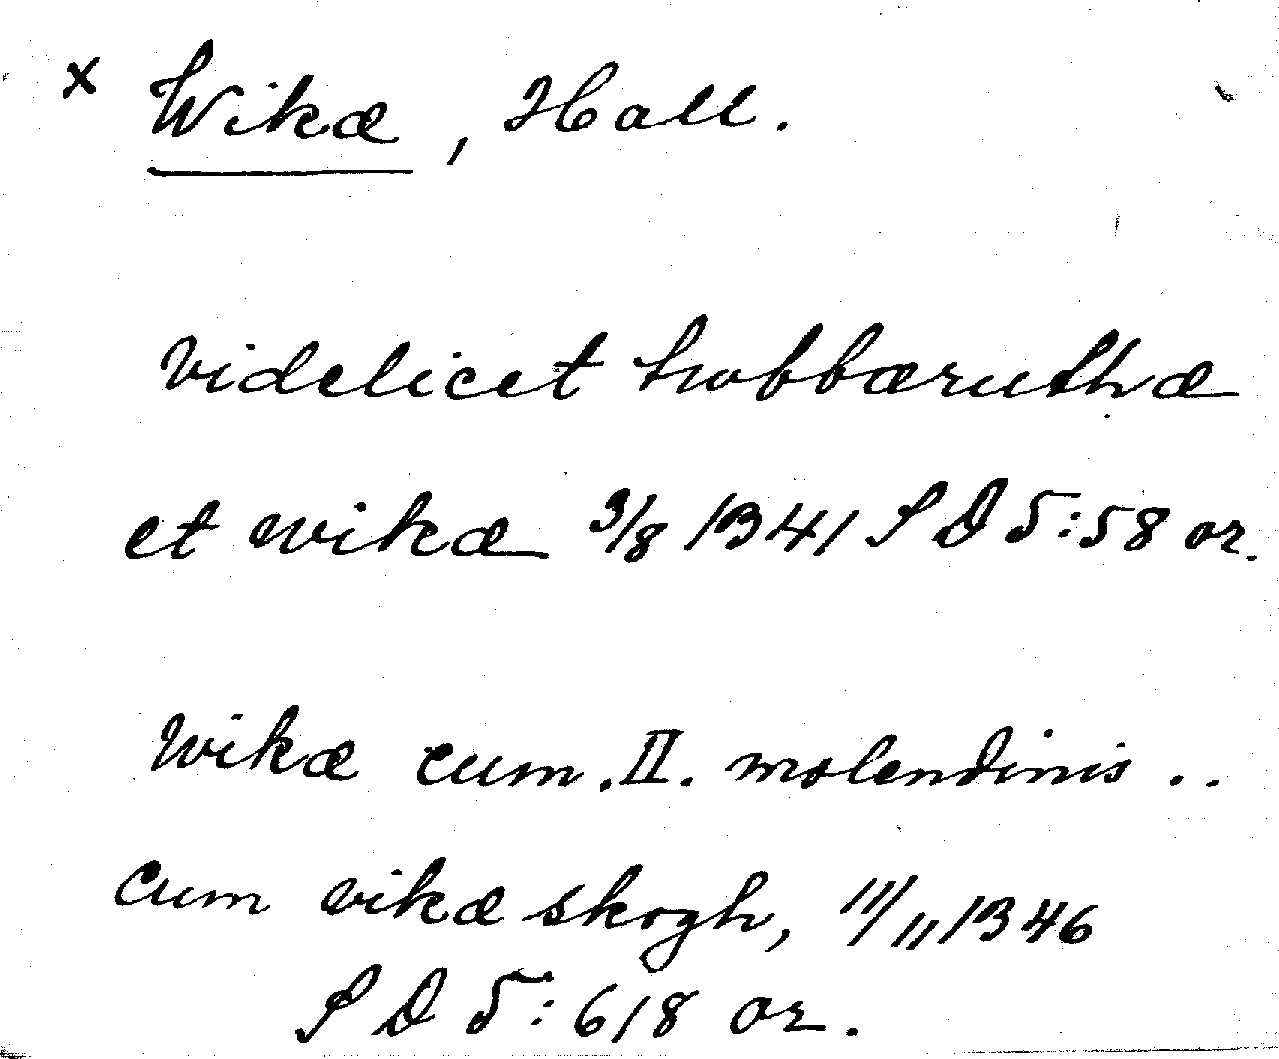 x Wikæ, Hall.
videlicet hwbbæruthæ
et wikæ 3/8 1341 SD 5:58 or.
Wikæ cum .II. molendinis ..
cum vikæ skogh, 11/11 1346
SD 5:618 or.